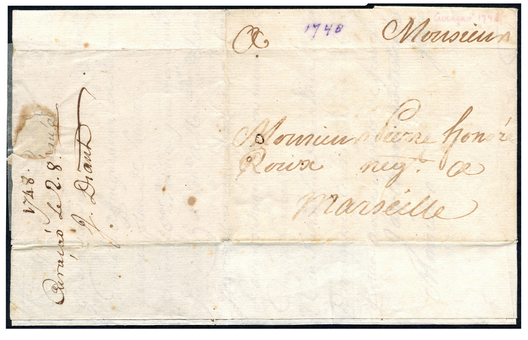 A
1748
Monsieur
Monsieur Pierre honoré
Roux negt. a
Marseille
1748.
Curaçao Le 28
J. Diant